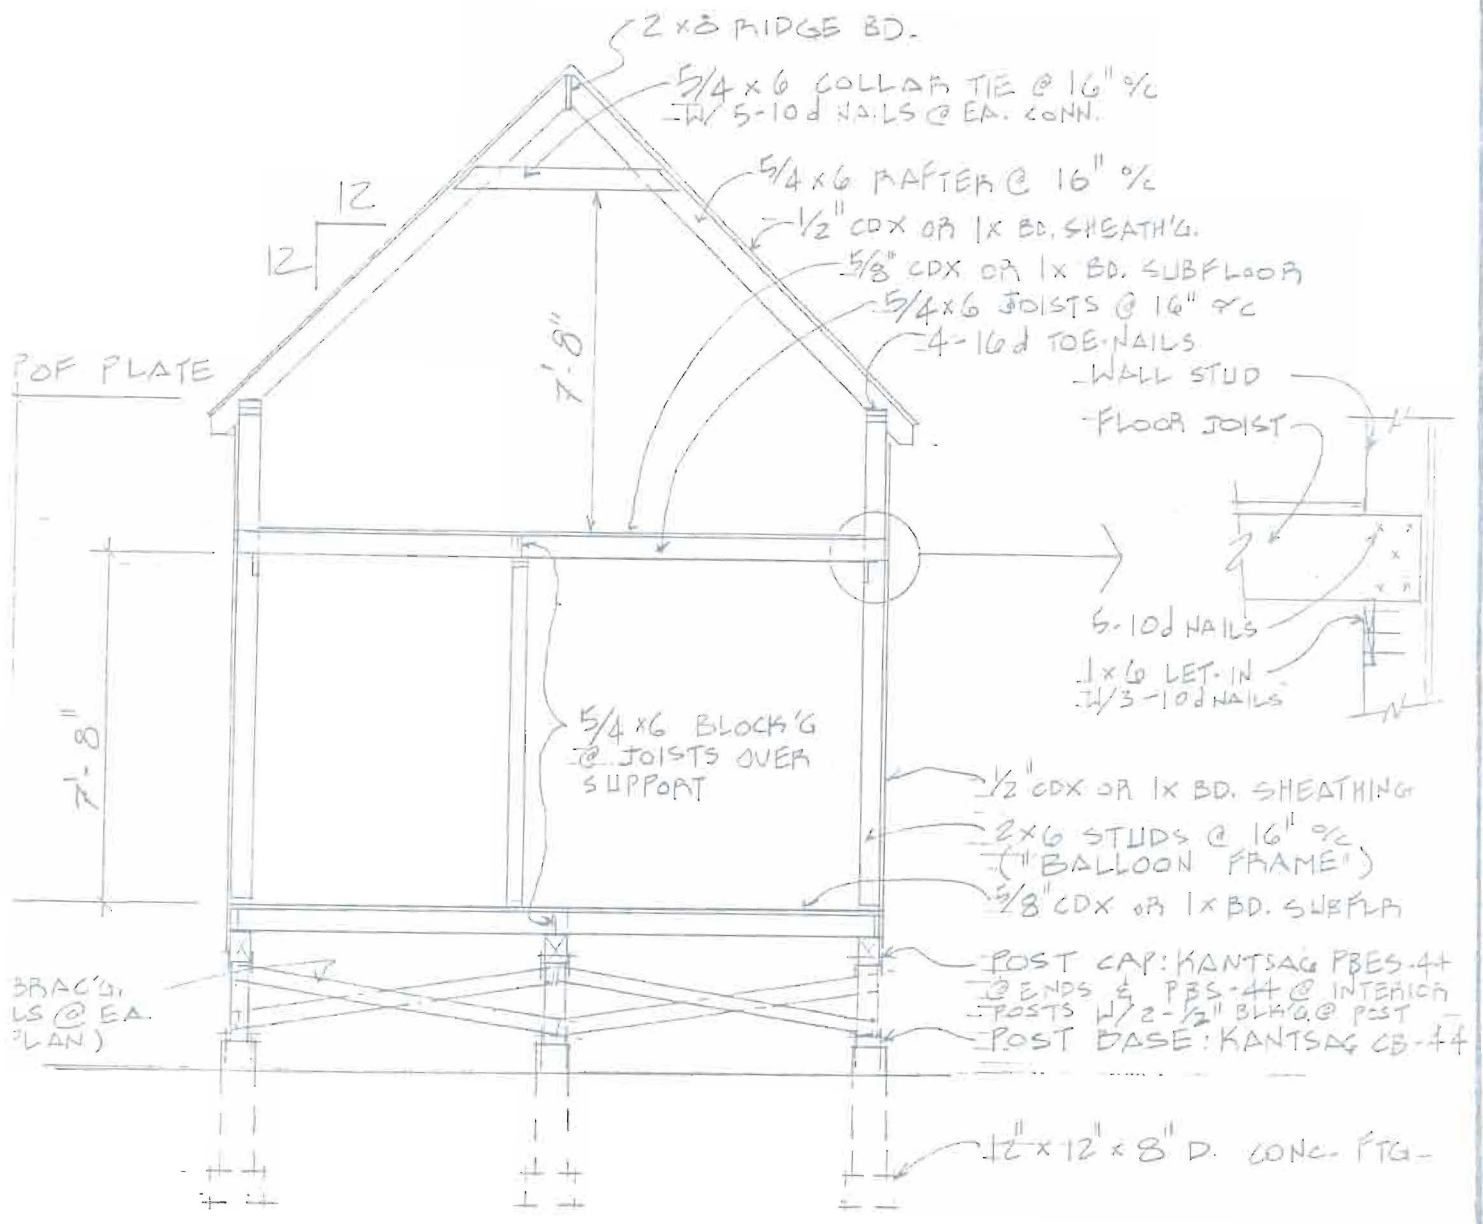 2 x 8 RIDGE BD.
5/4 x 6 COLLAR TIE @ 16" o/c
W/ 5-10d NAILS @ EA. CONN.
5/4 x 6 RAFTER @ 16" o/c
12
12
1/2" CDX OR 1x BD. SHEATH'G.
5/8" CDX OR 1x BD. SUBFLOOR
5/4 x 6 JOISTS @ 16" o/c
4-16d TOE-NAILS
7'-8"
OF PLATE
WALL STUD
FLOOR JOIST
5-10d NAILS
1 x 6 LET-IN
W/3-10d NAILS
7'-8"
5/4 x 6 BLOCK'G
@ JOISTS OVER
SUPPORT
1/2" CDX OR 1x BD. SHEATHING
2x6 STUDS @ 16" o/c
("BALLOON FRAME")
5/8" CDX OR 1x BD. SUBFLR
BRAC'G.
LS @ EA.
PLAN)
POST CAP: KANTSAG PBES-44
@ ENDS & PBS-44 @ INTERIOR
POSTS W/ 2-1/2" BLK'G. @ POST
POST BASE: KANTSAG CB-44
12" x 12" x 8" D. CONC. FTG.